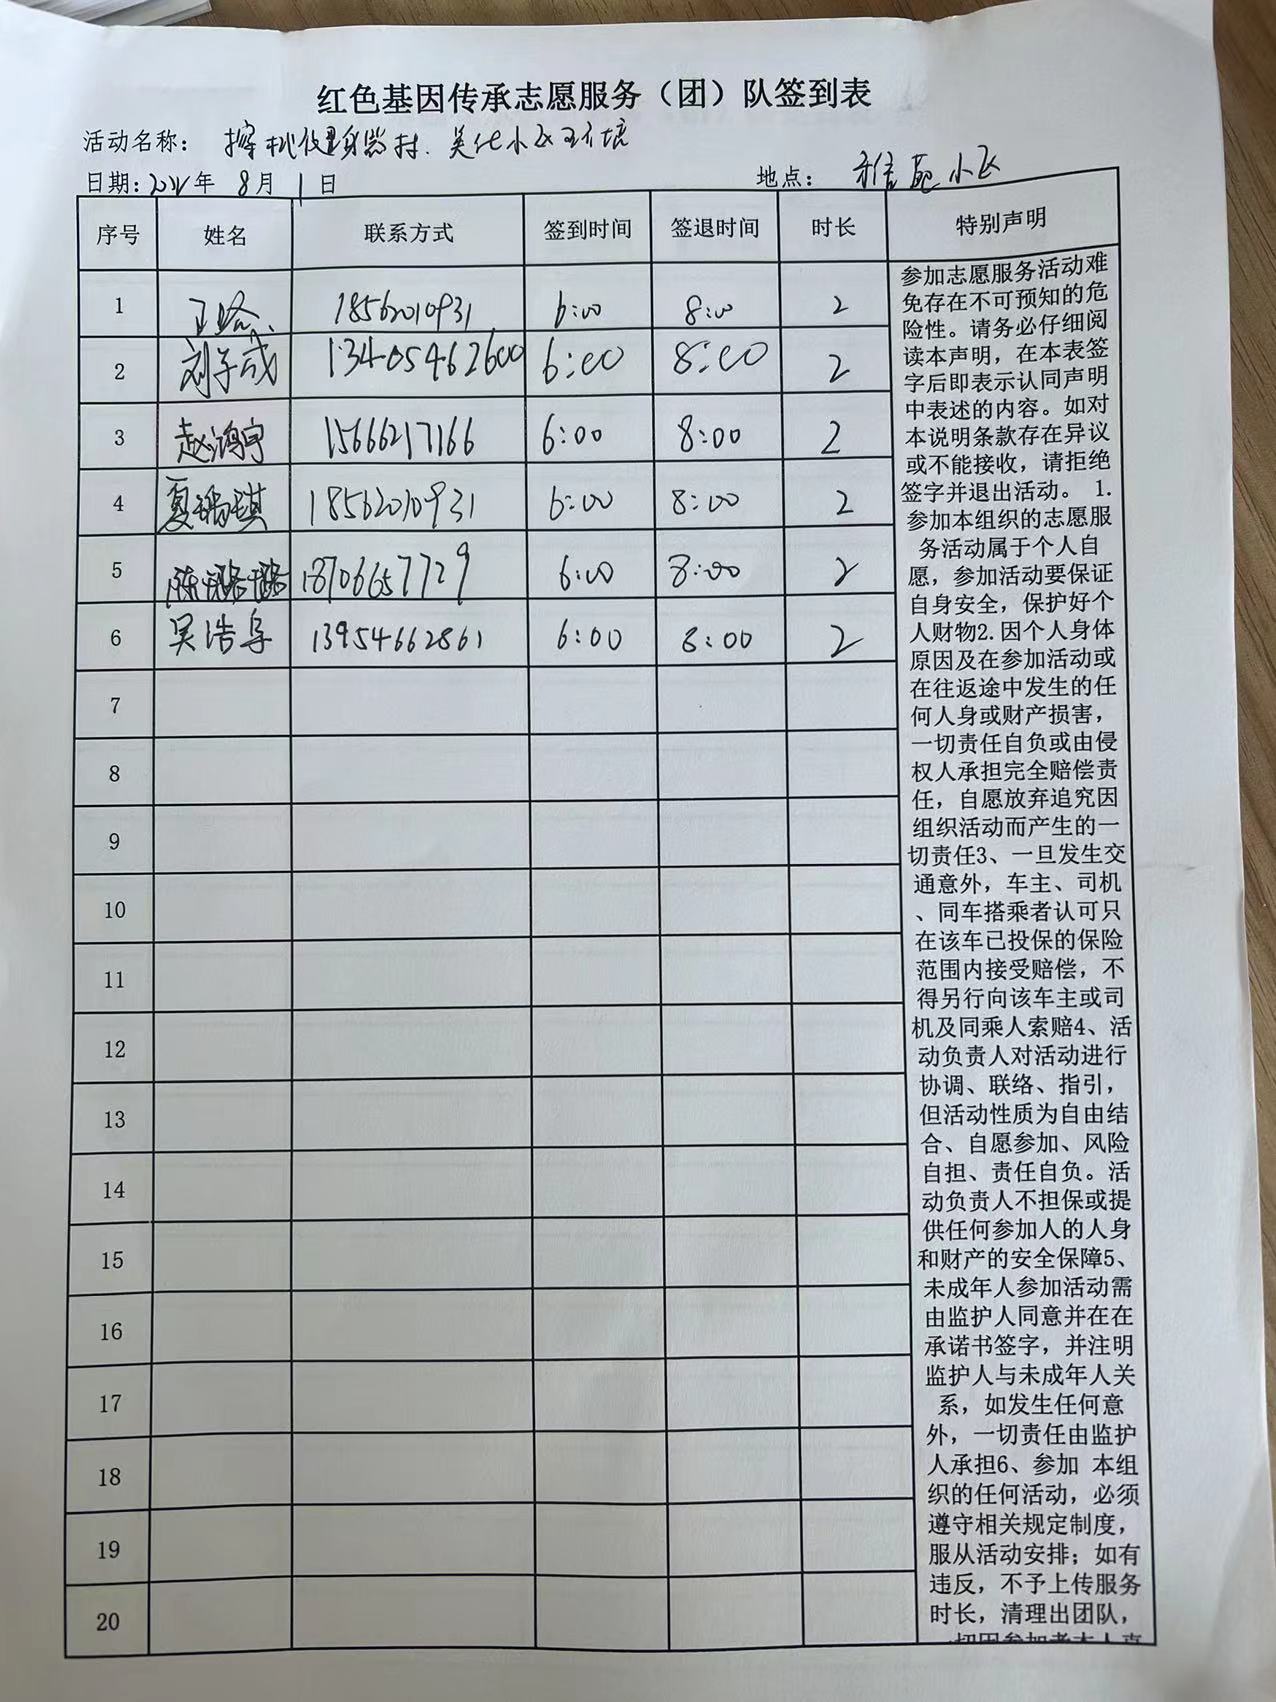 红色基因传承志愿服务（团）队签到表
活动名称： 擦拭健身器材、美化小区环境
日期： 年 8月 1日 地点： 雅苑小区
序号 姓名 联系方式 签到时间 签退时间 时长 特别声明
1 18562010931 6:00 8:00 2
2 刘子成 13405462600 6:00 8:00 2
3 赵鸿宇 15666217166 6:00 8:00 2
4 夏瑞琪 18562010931 6:00 8:00 2
5 陈璐璐 18706657729 6:00 8:00 2
6 吴浩导 13954662861 6:00 8:00 2
7
8
9
10
11
12
13
14
15
16
17
18
19
20
参加志愿服务活动难
免存在不可预知的危
险性。请务必仔细阅
读本声明，在本表签
字后即表示认同声明
中表述的内容。如对
本说明条款存在异议
或不能接收，请拒绝
签字并退出活动。 1.
参加本组织的志愿服
务活动属于个人自
愿，参加活动要保证
自身安全，保护好个
人财物2.因个人身体
原因及在参加活动或
在往返途中发生的任
何人身或财产损害，
一切责任自负或由侵
权人承担完全赔偿责
任，自愿放弃追究因
组织活动而产生的一
切责任3、一旦发生交
通意外，车主、司机
、同车搭乘者认可只
在该车已投保的保险
范围内接受赔偿，不
得另行向该车主或司
机及同乘人索赔4、活
动负责人对活动进行
协调、联络、指引，
但活动性质为自由结
合、自愿参加、风险
自担、责任自负。活
动负责人不担保或提
供任何参加人的人身
和财产的安全保障5、
未成年人参加活动需
由监护人同意并在在
承诺书签字，并注明
监护人与未成年人关
系，如发生任何意
外，一切责任由监护
人承担6、参加 本组
织的任何活动，必须
遵守相关规定制度，
服从活动安排；如有
违反，不予上传服务
时长，清理出团队，